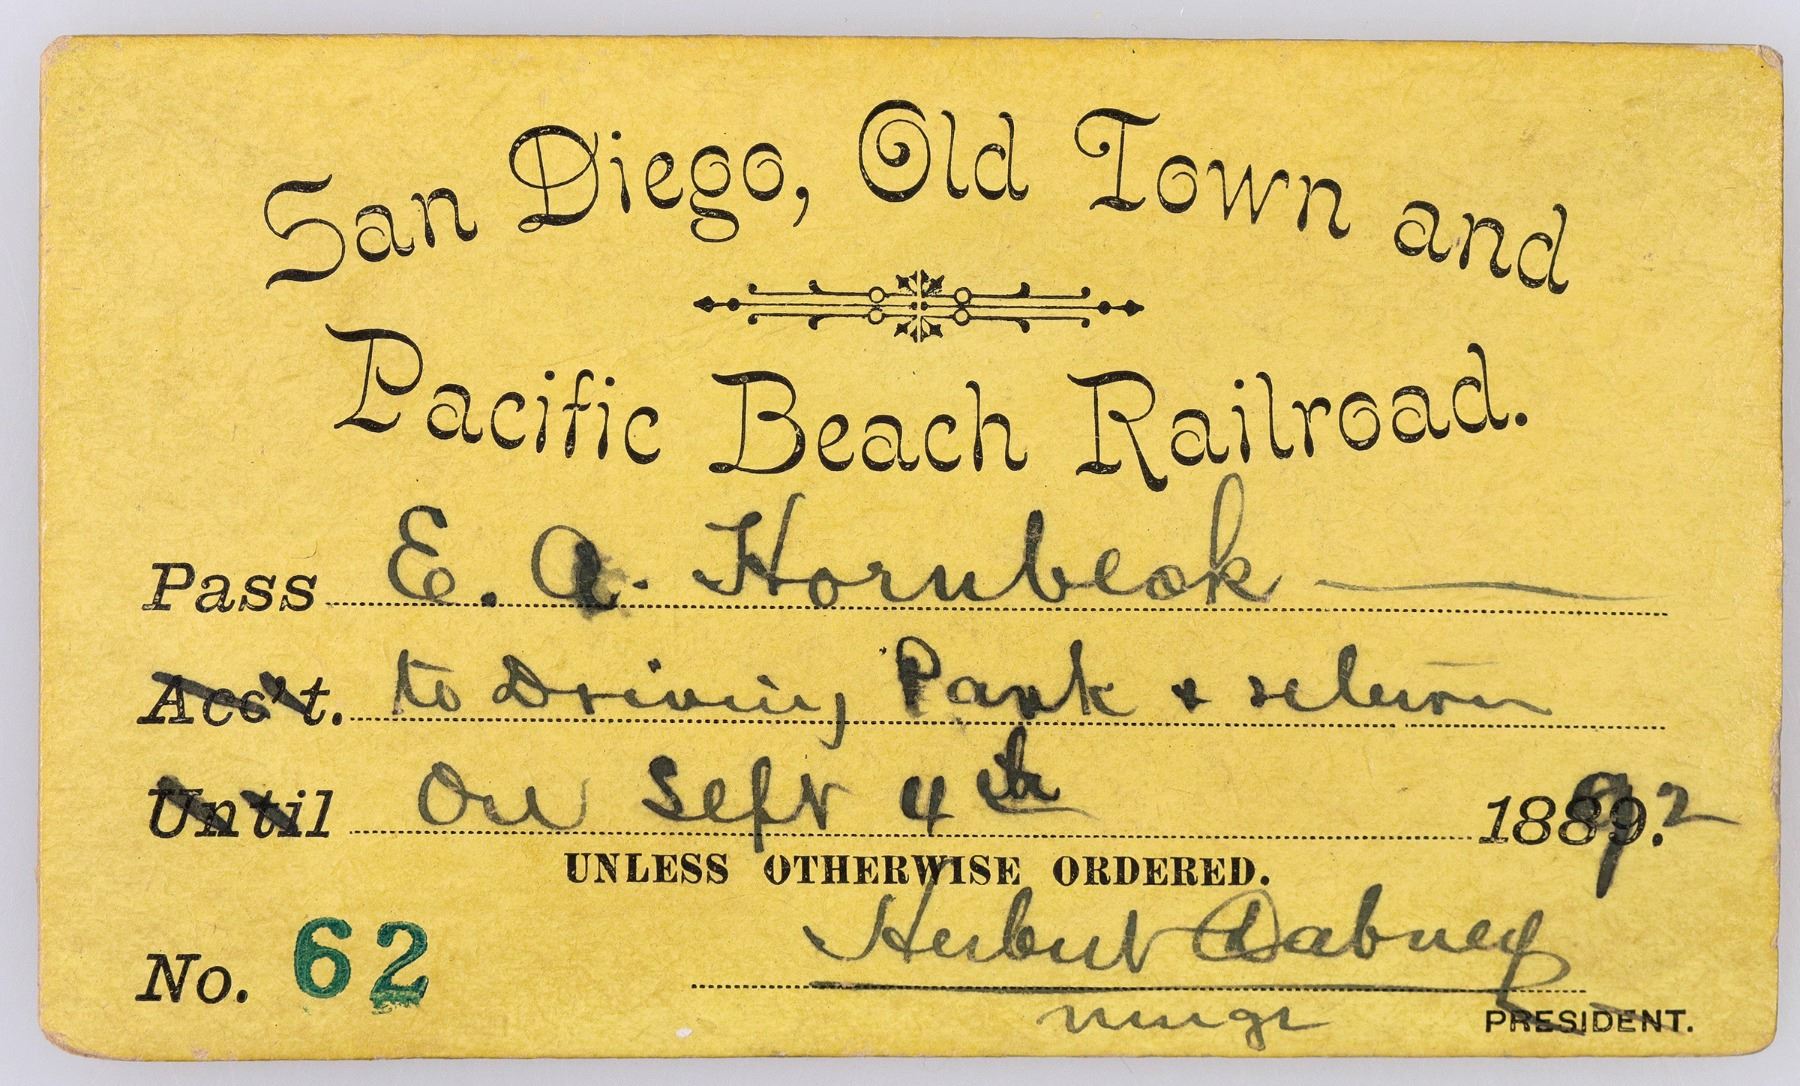 San Diego, Old Town and
Pacific Beach Railroad.
Pass E. A. Hornbeck
Acc't. to Driving Park & return
Until On Sept 4th 1889. 92
UNLESS OTHERWISE ORDERED.
No. 62 Herbert Dabney
mngr PRESIDENT.